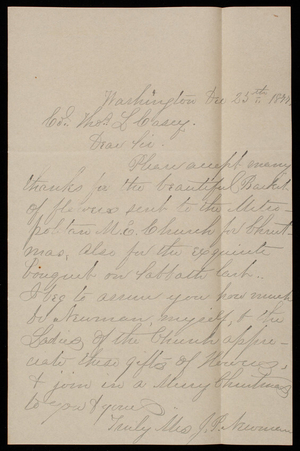 Washington Dec 25th 188
Col. Thos L. Casey.
Dear Sir.
Please accept many
thanks for the beautiful Basket
of flowers sent to the Metro-
politan M.E. Church for Christ-
mas, also for the exquisite
bouquet on Sabbath last.
I beg to assure you how much
Dr Newman, myself, & the
Ladies, of the Church appre-
ciate these gifts of flowers,
& join in a Merry Christmas
to you & yours.
Truly Mrs J. P. Newman